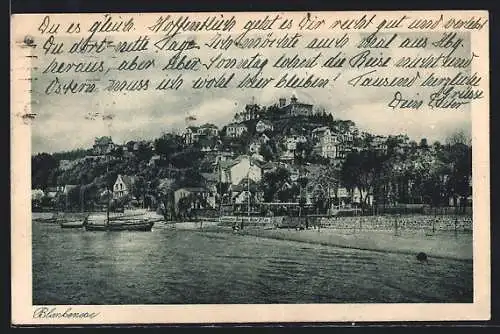 Du es gleich. Hoffentlich geht es Dir recht gut und verlebst
Du dort nette Tage. Ich möchte auch mal aus Hbg.
heraus, aber über Sonntag lohnt die Reise nicht und
Ostern muss ich wohl hier bleiben! Tausend herzliche
Grüsse
Dein
Blankenese